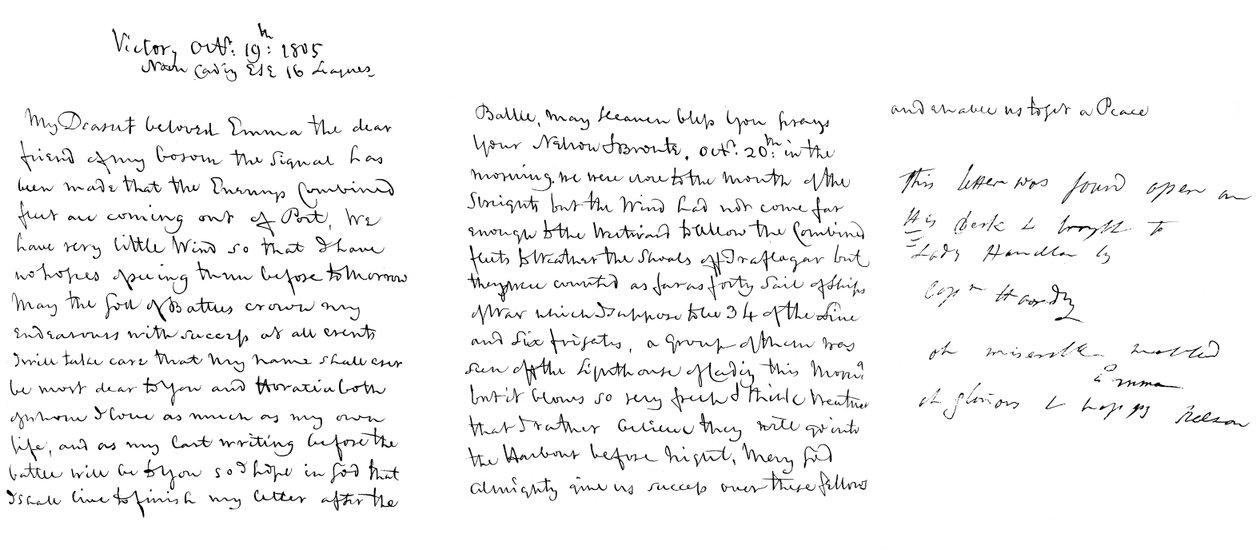 Victory Octr: 19th: 1805
Noon Cadiz ESE 16 Leagues
My Dearest beloved Emma the dear
friend of my bosom the signal has
been made that the Enemys Combined
fleet are coming out of Port, We
have very little Wind so that I have
no hopes of seeing them before tomorrow
May the God of Battles crown my
Endeavours with success at all events
I will take care that my name shall ever
be most dear to you and Horatia both
of whom I love as much as my own
life, and as my last writing before the
battle will be to you so I hope in God that
I shall live to finish my letter after the
Battle, may Heaven bless you prays
your Nelson & Bronte, Octr: 20th: in the
morning we were close to the mouth of the
Streights but the Wind had not come far
enough to the Westward to allow the Combined
fleets to weather the Shoals off Traflagar but
they were counted as far as forty Sail of Ships
of War which I suppose to be 34 of the Line
and Six frigates, a group of them was
seen off the Lighthouse of Cadiz this Morng
but it blows so very fresh & thick weather
that I rather believe they will go into
the Harbour before night, May God
Almighty give us success over these fellows
and enable us to get a Peace
This letter was found open on
His Desk & brought to
Lady Hamilton by
Capn Hardy
oh miserable wretched
Emma
oh glorious & happy Nelson